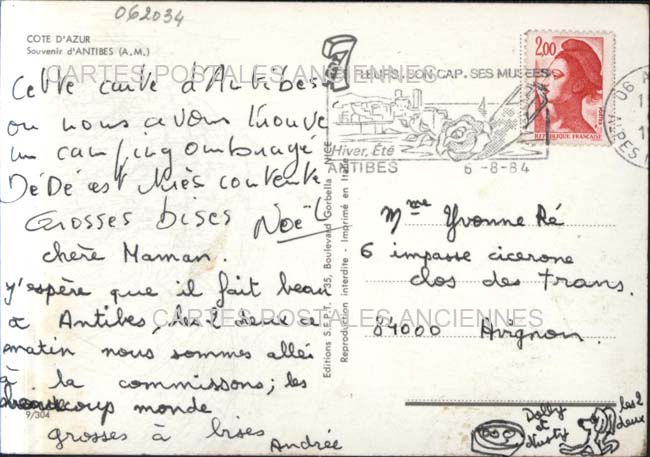 062034
COTE D'AZUR
Souvenir d'ANTIBES (A.M.)
CARTES POSTALES ANCIENNES
Cette carte d'Antibes
ou nous avons trouvé
un camping ombragé
DéDé est très contente
Grosses bises Noël
chère Maman.
j'espère que il fait beau
a Antibes, les 2
matin nous sommes allés
à la commissons; les
beaucoup monde
grosses à bises
Andrée
9/304
Editions S.E.P.T. 35, Boulevard Gorbella - NICE
Reproduction interdite - Imprimé en Italie
FLEURS, SON CAP, SES MUSÉES
Hiver, Été
ANTIBES
6-8-84
2,00
REPUBLIQUE FRANÇAISE
06
Mme Yvonne Ré
6 impasse cicerone
clos des Trams.
CARTES POSTALES ANCIENNES
84000 Avignon.
Dolly
et
les 2
deux